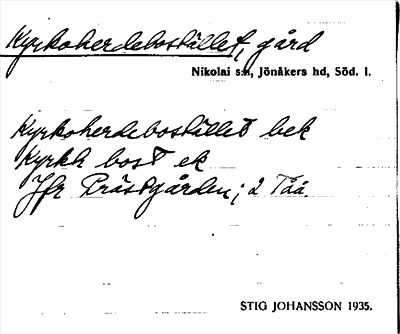 Kyrkoherdebostället, gård
Nikolai s:n, Jönåkers hd, Söd. l.
Kyrkoherdebostället bek
Kyrkh bost ek
Jfr Prästgården; 2 Tåå.
STIG JOHANSSON 1935.